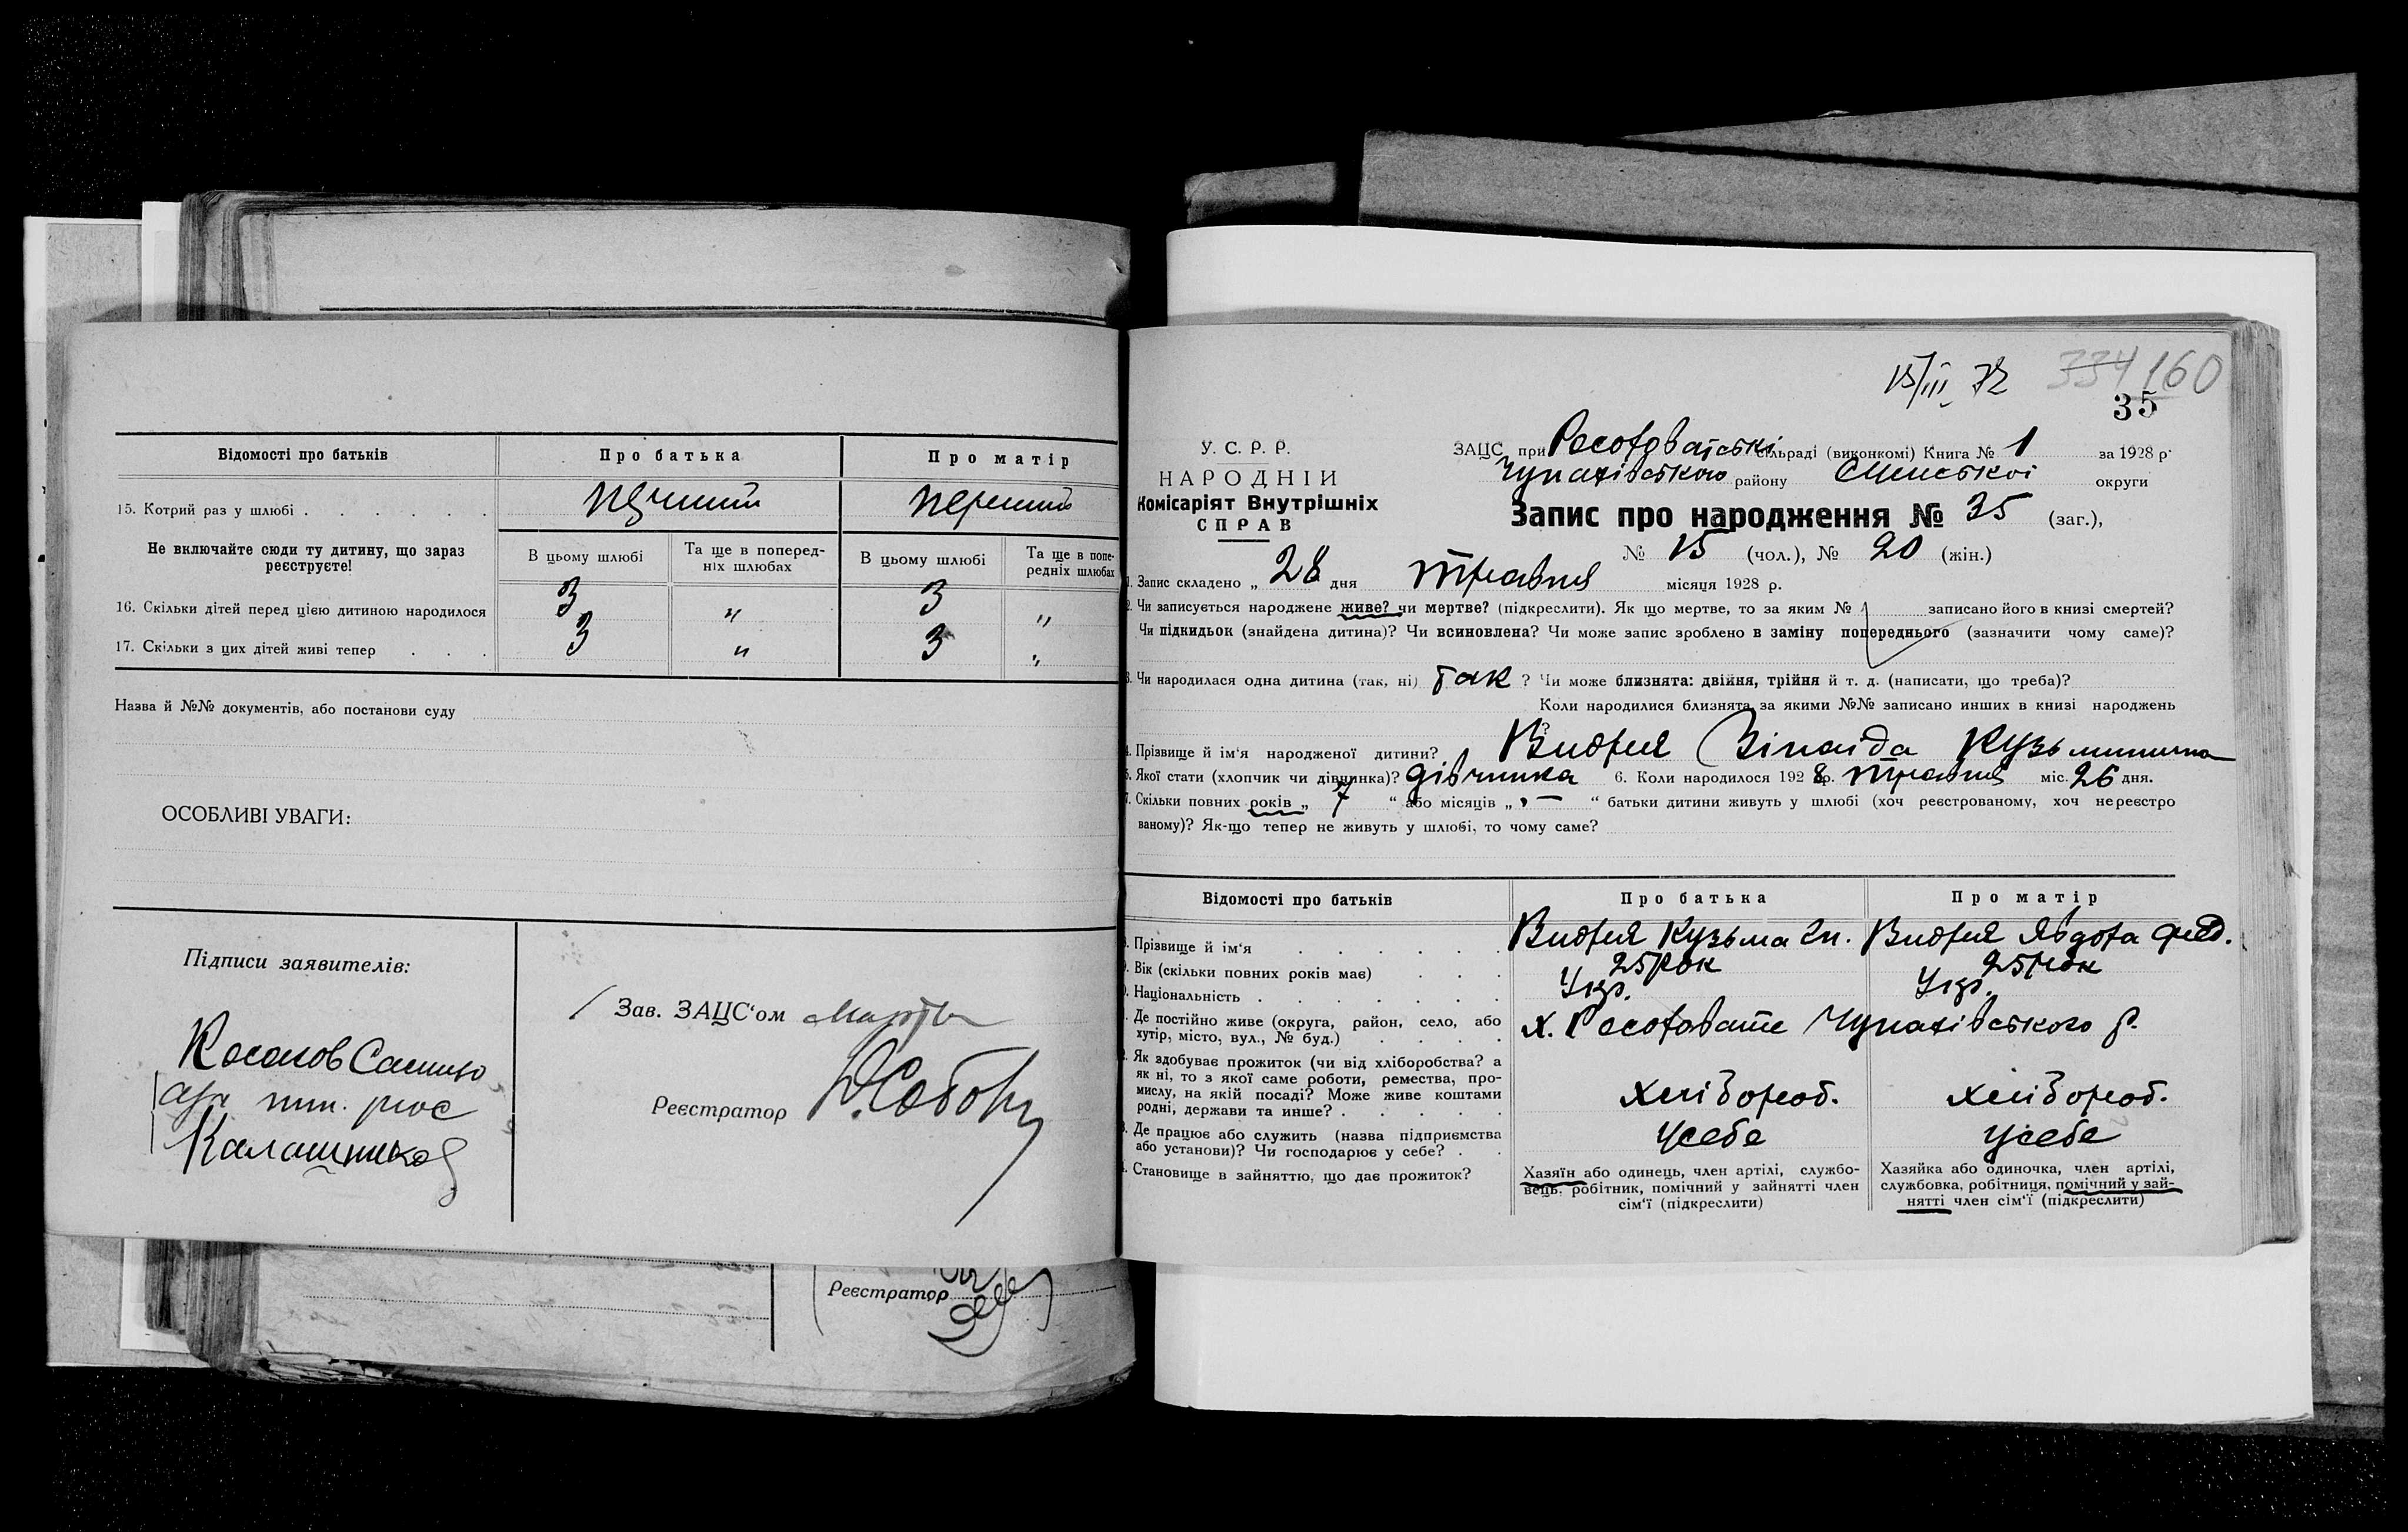 Відомості про батьків
Про батька
Про матір
15. Котрий раз у шлюбі
перший
перший
Не включайте сюди ту дитину, що зараз реєструєте!
В цьому шлюбі
Та ще в поперед-
ніх шлюбах
В цьому шлюбі
Та ще в попе-
редніх шлюбах
16. Скільки дітей перед цією дитиною народилося
3
"
3
"
17. Скільки з цих дітей живі тепер
3
"
3
"
Назва й №№ документів, або постанови суду
ОСОБЛИВІ УВАГИ:
Підписи заявителів:
Калашников
Зав. ЗАЦС'ом
Реєстратор
Реєстратор
15/III 72
334 160
35
У. С. Р. Р.
НАРОДНІЙ
Комісаріят Внутрішніх
СПРАВ
ЗАЦС при Рософоватській сільраді (виконкомі) Книга № 1 за 1928 р.
Чупахівського району Сумської округи
Запис про народження № 35 (заг.),
№ 15 (чол.), № 20 (жін.)
1. Запис складено „ 28 дня травня місяця 1928 р.
2. Чи записується народжене живе? чи мертве? (підкреслити). Як що мертве, то за яким № записано його в книзі смертей?
Чи підкидьок (знайдена дитина)? Чи всиновлена? Чи може запис зроблено в заміну попереднього (зазначити чому саме)?
3. Чи народилася одна дитина (так, ні) так ? Чи може близнята: двійня, трійня й т. д. (написати, що треба)?
Коли народилися близнята за якими №№ записано инших в книзі народжень
?
4. Прізвище й ім'я народженої дитини? Видря Зінаїда Кузьминична
5. Якої стати (хлопчик чи дівчинка)? дівчинка 6. Коли народилося 1928 р. травня міс. 26 дня.
7. Скільки повних років „ 7 “ або місяців „ — “ батьки дитини живуть у шлюбі (хоч реєстрованому, хоч нереєстро
ваному)? Як-що тепер не живуть у шлюбі, то чому саме?
Відомості про батьків
Про батька
Про матір
8. Прізвище й ім'я
Видря Кузьма
Видря Явдоха Фед.
9. Вік (скільки повних років має)
25 рок
25 рок
10. Національність
Укр.
Укр.
Де постійно живе (округа, район, село, або
хутір, місто, вул., № буд.)
х. Рософовате Чупахівського р.
Як здобуває прожиток (чи від хліборобства? а
як ні, то з якої саме роботи, ремества, про-
мислу, на якій посаді? Може живе коштами
родні, держави та инше?
хлібороб.
хлібороб.
Де працює або служить (назва підприємства
або установи)? Чи господарює у себе?
Усебе
Усебе
Становище в зайняттю, що дає прожиток?
Хазяїн або одинець, член артілі, службо-
вець, робітник, помічний у зайнятті член
сім'ї (підкреслити)
Хазяйка або одиночка, член артілі,
службовка, робітниця, помічний у зай-
нятті член сім'ї (підкреслити)